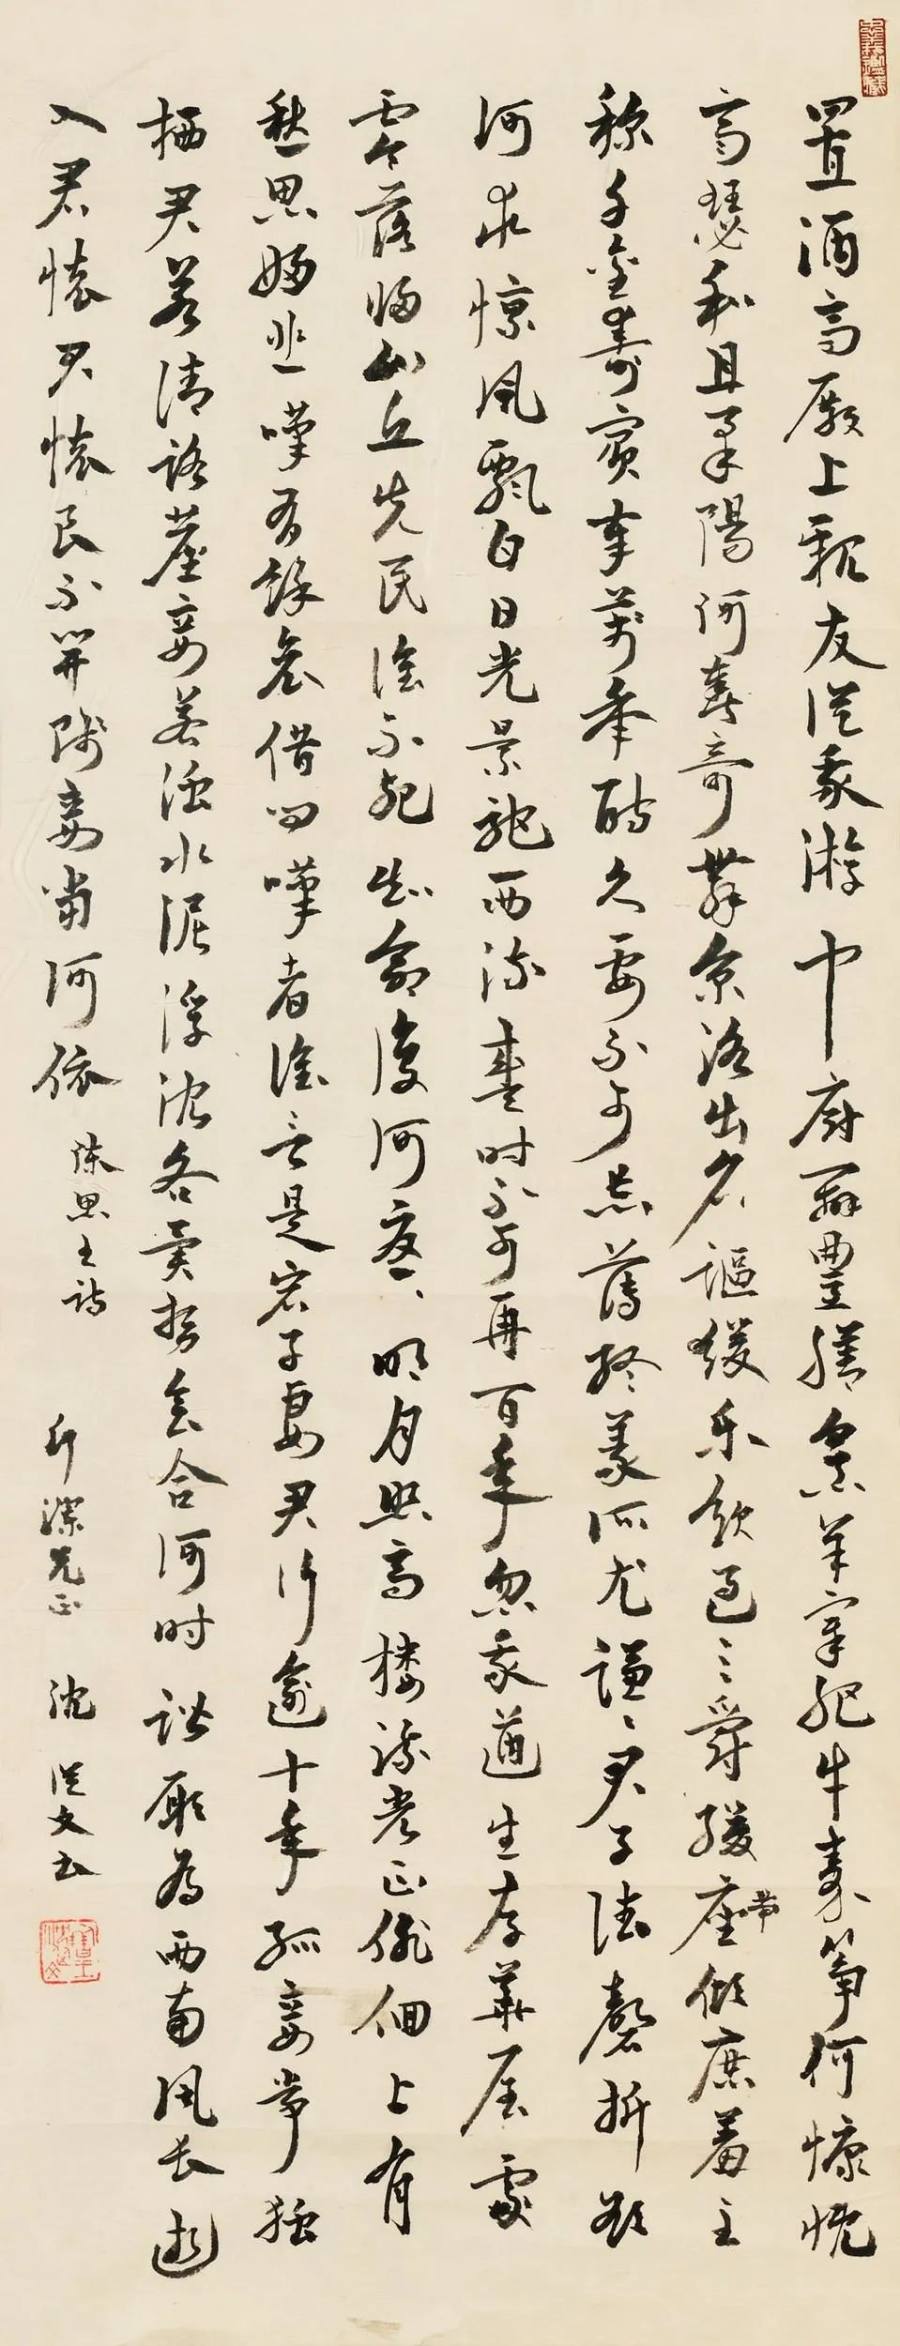 置酒高殿上親友從我游中廚辦豐膳烹羊宰肥牛秦箏何慷慨
齊瑟和且柔陽阿奏奇舞京洛出名謳緩樂飲過三爵緩座帶傾庶羞主
稱千金壽賓奉萬年酬久要不可忘薄終義所尤謙謙君子德磬折欲
何求惊風飄白日光景馳西流盛时不可再百年忽我遒生存華屋處
零落歸山丘先民誰不死知命復何憂明月照高樓流光正徘徊上有
愁思婦悲嘆有餘哀借問嘆者誰言是宕子妻君行逾十年孤妾常獨
栖君若清路塵妾若濁水泥浮沈各異勢會合何时諧願為西南风長逝
入君懷君懷良不開賤妾當何依 陳思王詩
兄正 沈從文書